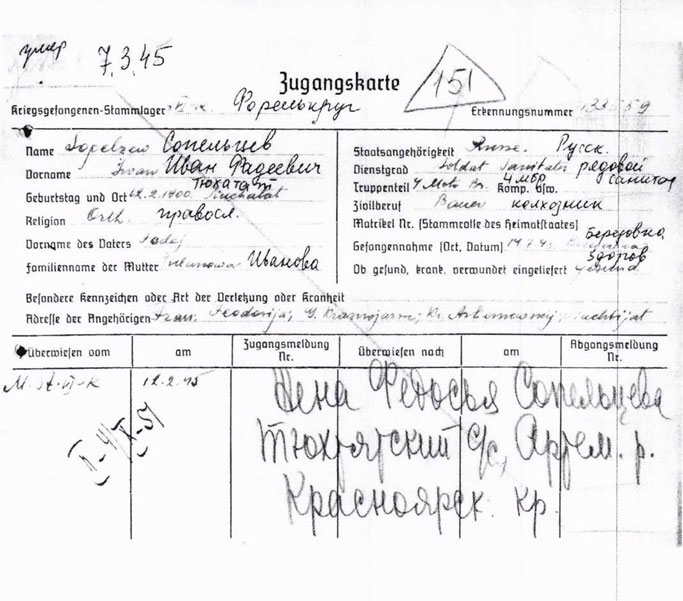 умер 7.3.45
151
Zugangskarte
Kriegsgefangenen-Stammlager Форелькруг Erkennungsnummer
Name Sopelzew Сопельцев
Vorname Iwan Иван Фадеевич
Тюхтат
Geburtstag und Ort 12.2.1900 Tuchatat
Religion Orth. правосл.
Vorname des Vaters Fadej
Familienname der Mutter Iwanowa Иванова
Staatsangehörigkeit Russe. Русск.
Dienstgrad Soldat Sanitäter рядовой санитар
4 МБР
Truppenteil 4 Mot. Br. Komp. usw.
Zivilberuf Bauer колхозник
Matrikel Nr. (Stammrolle des Heimatstaates)
Березовка
Gefangennahme (Ort, Datum)
здоров
Ob gesund, krank, verwundet eingeliefert gesund
Besondere Kennzeichen oder Art der Verletzung oder Krankheit
Adresse der Angehörigen Frau: Feodosija, G. Krasnojarsk, Kr. Artemowskij, Tuchtjat
Überwiesen vom am Zugangsmeldung Nr. Überwiesen nach am Abgangsmeldung Nr.
12.2.45
X-41/X-51
Жена Федосья Сопельцева
Тюхтятский с/с, Артем. р.
Красноярск. кр.